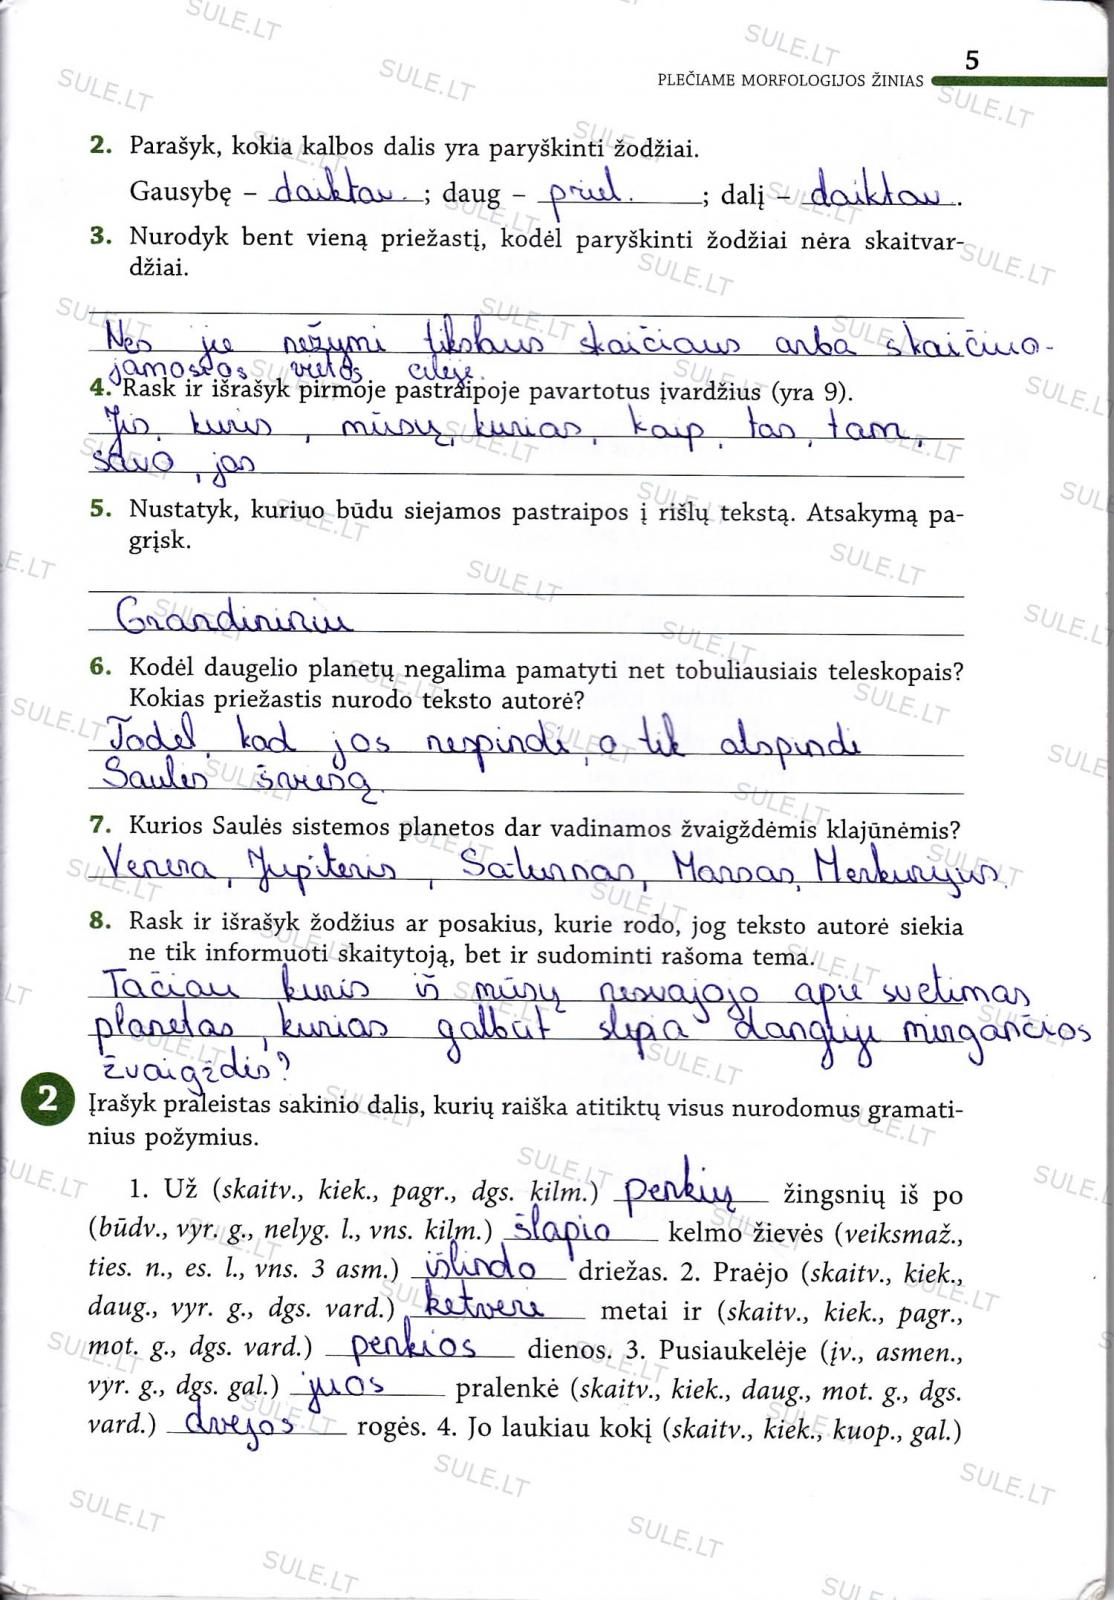 5
PLEČIAME MORFOLOGIJOS ŽINIAS
2. Parašyk, kokia kalbos dalis yra paryškinti žodžiai.
Gausybę – daiktav. ; daug – priel. ; dalį – daiktav .
3. Nurodyk bent vieną priežastį, kodėl paryškinti žodžiai nėra skaitvar-
džiai.
Nes jie nežymi tikslaus skaičiaus arba skaičiuo-
jamosios vietos eilėje.
4. Rask ir išrašyk pirmoje pastraipoje pavartotus įvardžius (yra 9).
Jis, kuris, mūsų, kurias, kaip, tas, tam,
savo, jas
5. Nustatyk, kuriuo būdu siejamos pastraipos į rišlų tekstą. Atsakymą pa-
grįsk.
Grandininiu
6. Kodėl daugelio planetų negalima pamatyti net tobuliausiais teleskopais?
Kokias priežastis nurodo teksto autorė?
Todėl, kad jos nespindi, o tik atspindi
Saulės šviesą.
7. Kurios Saulės sistemos planetos dar vadinamos žvaigždėmis klajūnėmis?
Venera, Jupiteris, Saturnas, Marsas, Merkurijus.
8. Rask ir išrašyk žodžius ar posakius, kurie rodo, jog teksto autorė siekia
ne tik informuoti skaitytoją, bet ir sudominti rašoma tema.
Tačiau kuris iš mūsų nesvajojo apie svetimas
planetas, kurias galbūt slepia danguje mirgančios
žvaigždės?
2 Įrašyk praleistas sakinio dalis, kurių raiška atitiktų visus nurodomus gramati-
nius požymius.
1. Už (skaitv., kiek., pagr., dgs. kilm.) penkių žingsnių iš po
(būdv., vyr. g., nelyg. l., vns. kilm.) šlapio kelmo žievės (veiksmaž.,
ties. n., es. l., vns. 3 asm.) išlindo driežas. 2. Praėjo (skaitv., kiek.,
daug., vyr. g., dgs. vard.) ketveri metai ir (skaitv., kiek., pagr.,
mot. g., dgs. vard.) penkios dienos. 3. Pusiaukelėje (įv., asmen.,
vyr. g., dgs. gal.) juos pralenkė (skaitv., kiek., daug., mot. g., dgs.
vard.) dvejos rogės. 4. Jo laukiau kokį (skaitv., kiek., kuop., gal.)
SULE.LT